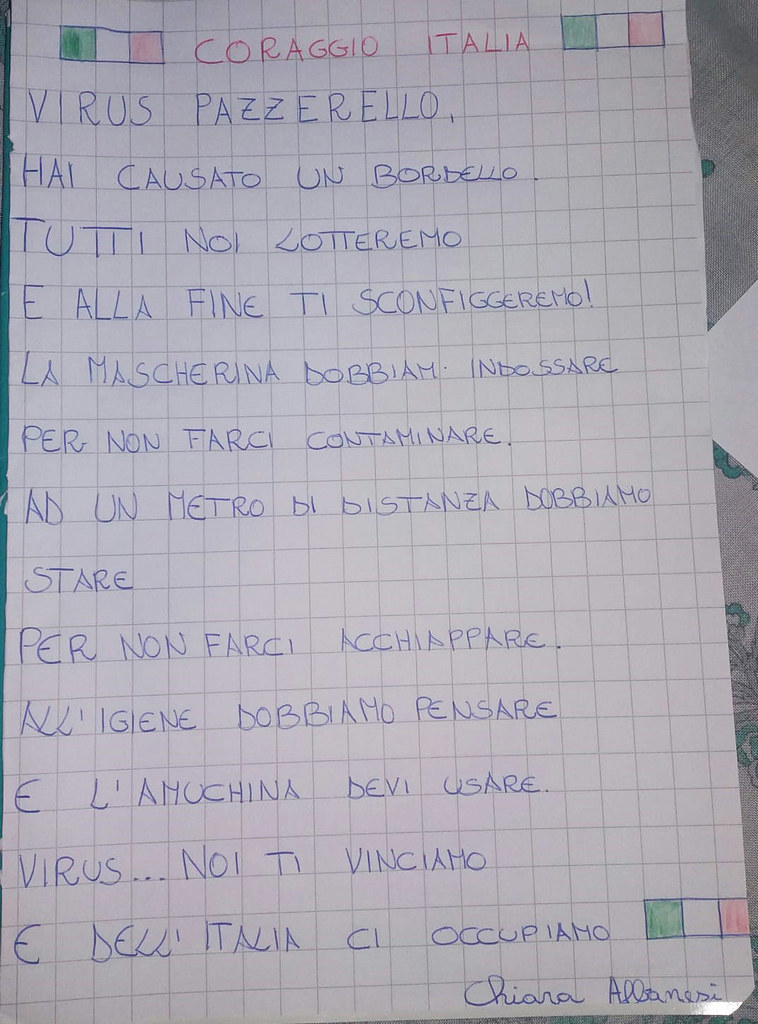 CORAGGIO ITALIA
VIRUS PAZZERELLO,
HAI CAUSATO UN BORDELLO.
TUTTI NOI LOTTEREMO
E ALLA FINE TI SCONFIGGEREMO!
LA MASCHERINA DOBBIAM. INDOSSARE
PER NON FARCI CONTAMINARE.
AD UN METRO DI DISTANZA DOBBIAMO
STARE
PER NON FARCI ACCHIAPPARE.
ALL'IGIENE DOBBIAMO PENSARE
E L'AMUCHINA DEVI USARE.
VIRUS... NOI TI VINCIAMO
E DELL'ITALIA CI OCCUPIAMO
Chiara Albanesi